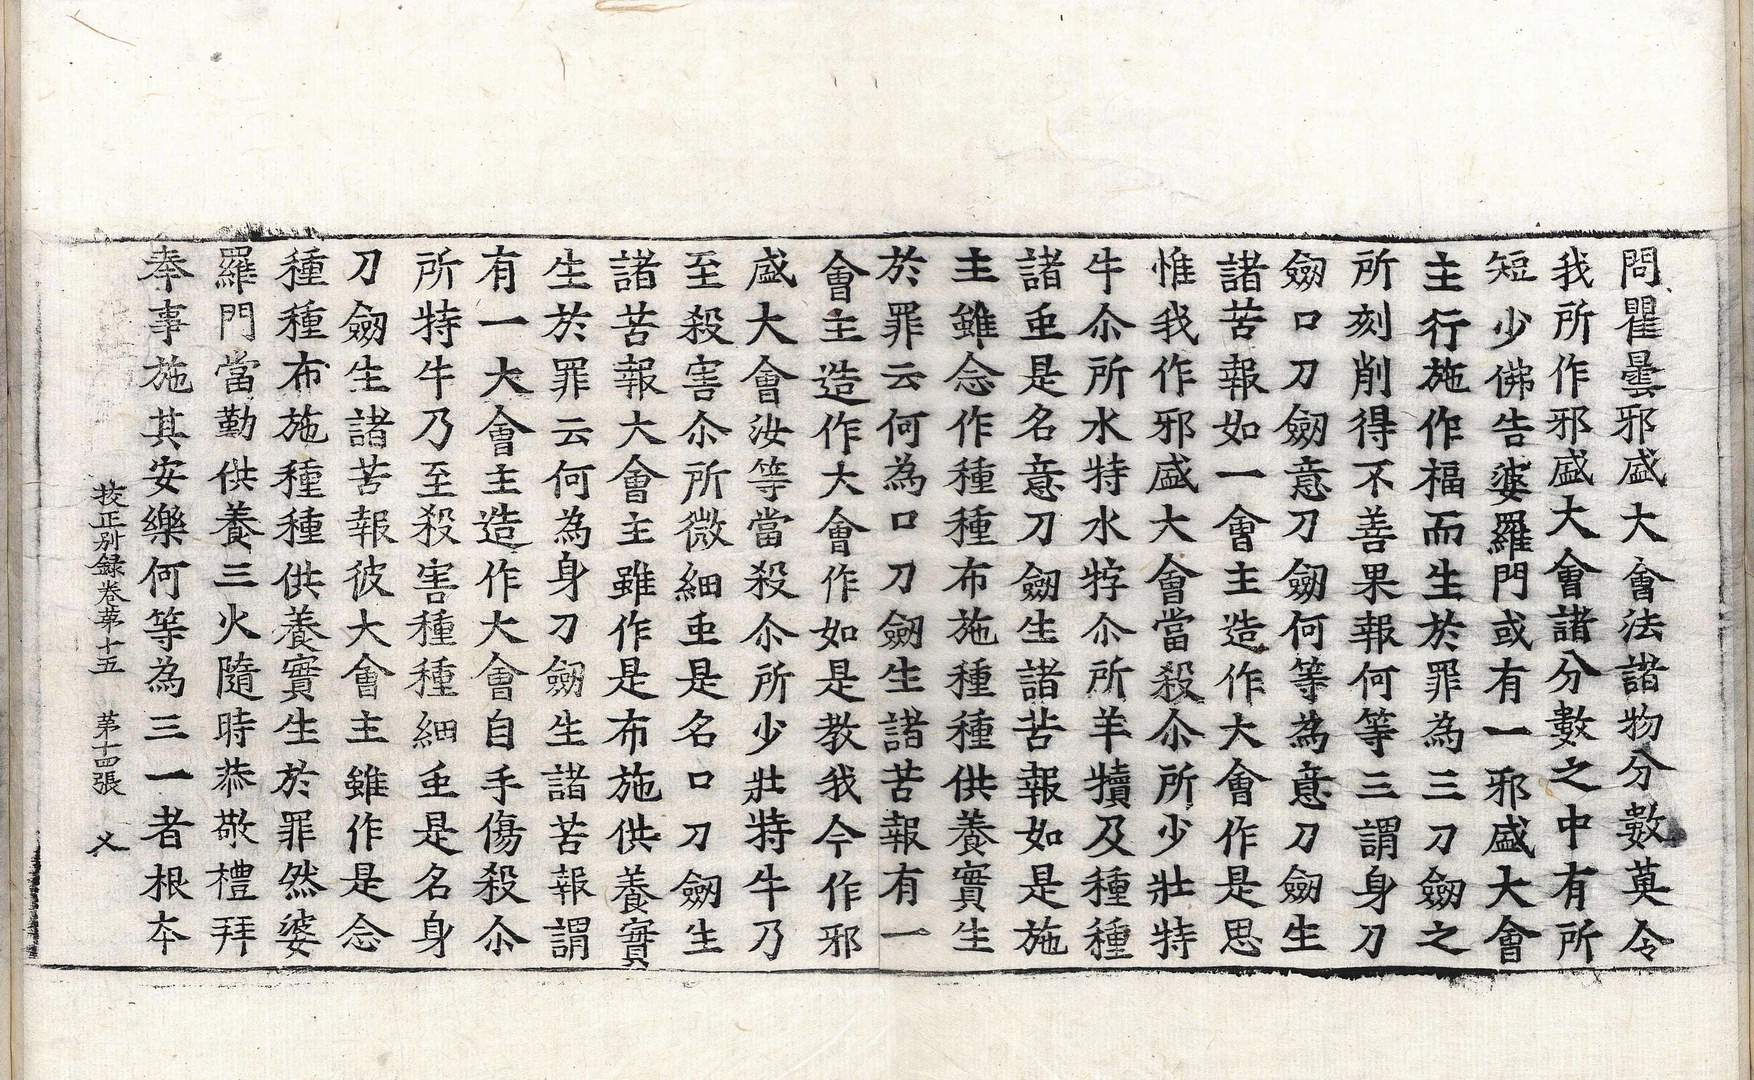 問瞿曇邪盛大會法諸物分數莫令
我所作邪盛大會諸分數之中有所
短少佛告婆羅門或有一邪盛大會
主行施作福而生於罪為三刀劒之
所刻削得不善果報何等三謂身刀
劒口刀劒意刀劒何等為意刀劒生
諸苦報如一會主造作大會作是思
惟我作邪盛大會當殺尒所少壯特
牛尒所水特水牸尒所羊犢及種種
諸䖝是名意刀劒生諸苦報如是施
主雖念作種種布施種種供養實生
於罪云何為口刀劒生諸苦報有一
會主造作大會作如是教我今作邪
盛大會汝等當殺尒所少壯特牛乃
至殺害尒所微細䖝是名口刀劒生
諸苦報大會主雖作是布施供養實
生於罪云何為身刀劒生諸苦報謂
有一大會主造作大會自手傷殺尒
所特牛乃至殺害種種細䖝是名身
刀劒生諸苦報彼大會主雖作是念
種種布施種種供養實生於罪然婆
羅門當勤供養三火隨時恭敬禮拜
奉事施其安樂何等為三一者根本
挍正別録卷苐十五 苐十四張 乂